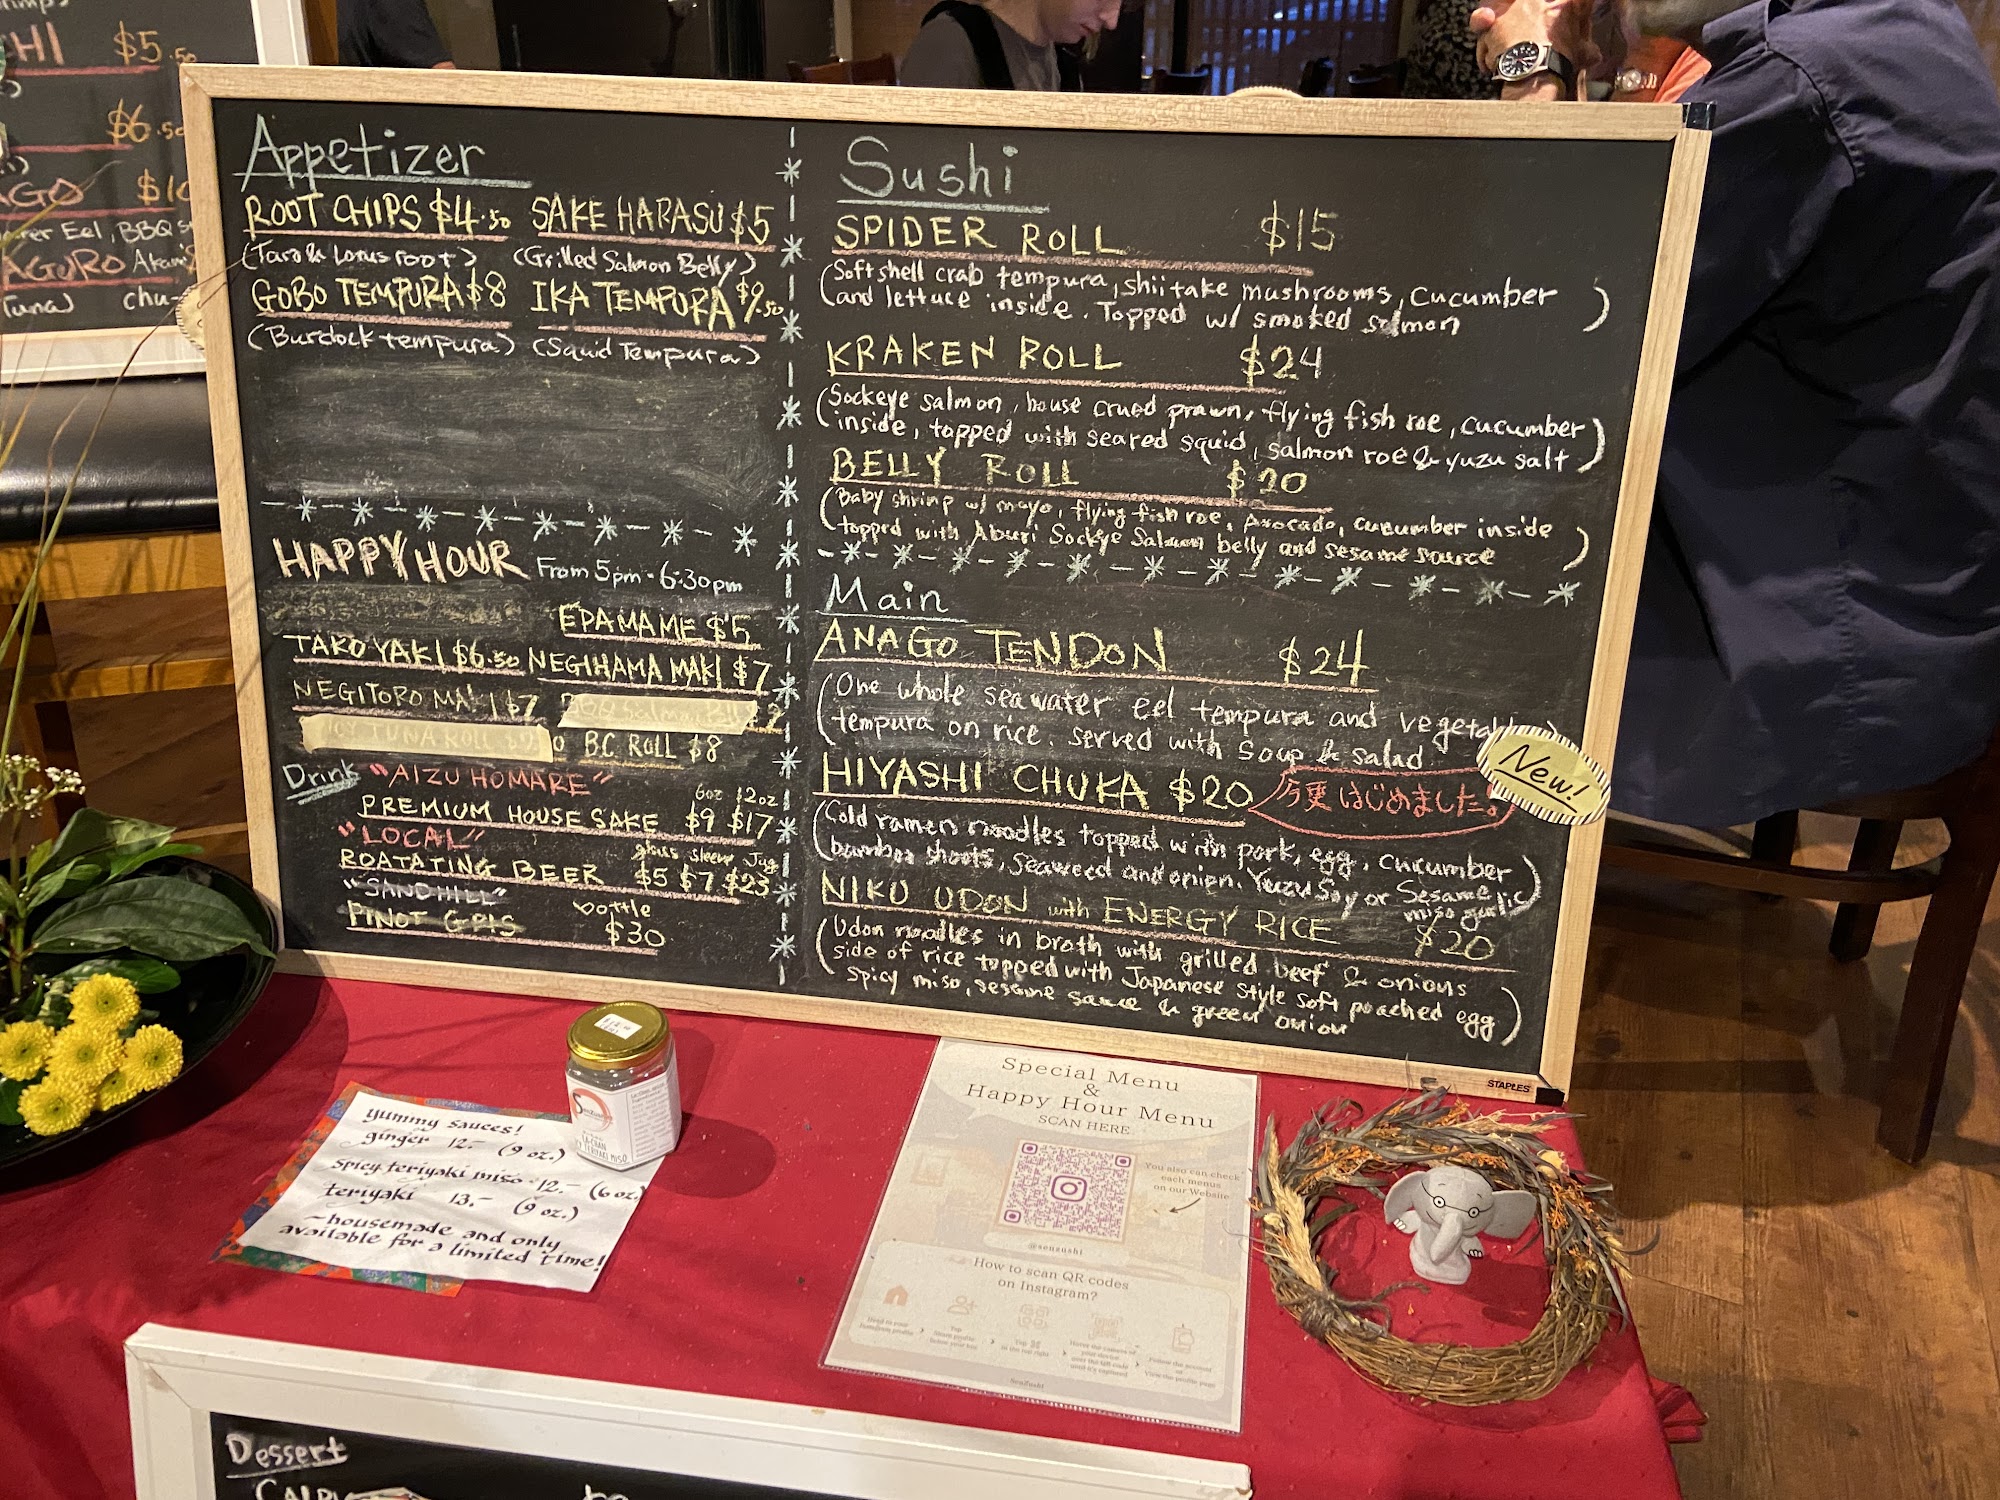 HI $5.50
$6.50
AGO $10
BBQ
AGURO Akami
Tuna) chu-
Appetizer
ROOT CHIPS $4.50
(Taro & Lotus root)
GOBO TEMPURA $8
(Burdock tempura)
SAKE HARASU $5
(Grilled Salmon Belly)
IKA TEMPURA $9.50
(Squid Tempura)
HAPPY HOUR From 5pm - 6:30pm
EDAMAME $5
TAKOYAKI $6.50 NEGIHAMA MAKI $7
NEGITORO MAKI $7 BBQ Salmon
TUNA ROLL B.C. ROLL $8
Drink "AIZU HOMARE"
6oz 12oz
PREMIUM HOUSE SAKE $9 $17
"LOCAL"
glass sleeve Jug
ROATATING BEER $5 $7 $23
"SANDHILL" bottle
PINOT GRIS $30
Sushi
SPIDER ROLL $15
(Soft shell crab tempura, shiitake mushrooms, cucumber
and lettuce inside. Topped w/ smoked salmon)
KRAKEN ROLL $24
(Sockeye salmon, house crued prawn, flying fish roe, cucumber
inside, topped with seared squid, salmon roe & yuzu salt)
BELLY ROLL $20
(Baby shrimp w/ mayo, flying fish roe, Avocado, cucumber inside
topped with Aburi Sockeye Salmon belly and sesame sauce)
Main
ANAGO TENDON $24
(One whole sea water eel tempura and vegetable
tempura on rice. served with Soup & salad
HIYASHI CHUKA $20 今夏はじめました。 New!
(Cold ramen noodles topped with pork, egg, cucumber
bamboo shoots, Seaweed and onion. Yuzu Soy or Sesame
miso garlic)
NIKU UDON with ENERGY RICE $20
(Udon noodles in broth with grilled beef & onions
side of rice topped with Japanese Style soft poached egg
spicy miso, sesame sauce & green onion)
STAPLES
yummy sauces!
ginger 12.- (9 oz.)
spicy teriyaki miso 12.- (6 oz.
teriyaki 13.- (9 oz.)
~housemade and only
available for a limited time!
Special Menu
&
Happy Hour Menu
SCAN HERE
You also can check
each menus
on our Website
@senzushi
How to scan QR codes
on Instagram?
SenZushi
Dessert